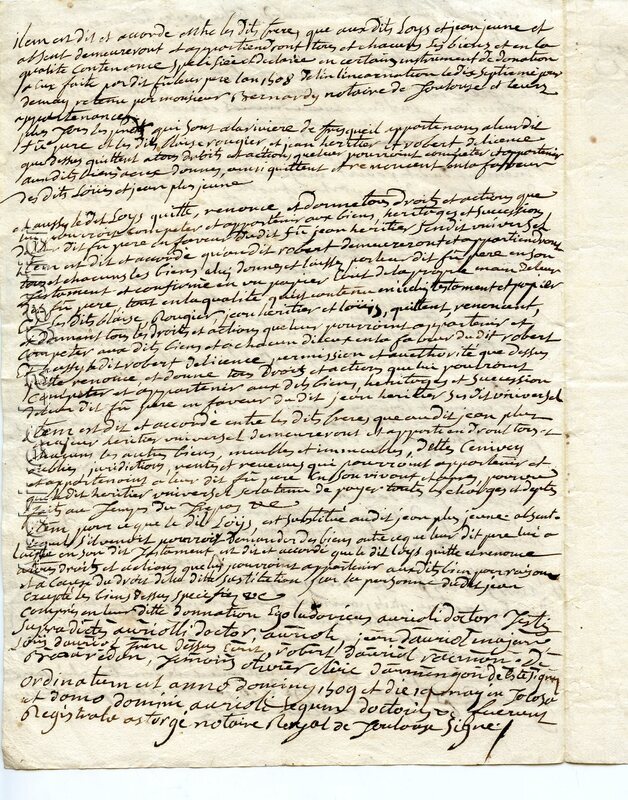 item est dit et accordé entre les dits freres, que aux dits Loys et jean jeune et
absent demeureront et appartiendront tous et chacuns les biens et en la
qualité contenence specifiée et declairée en certains instrument de donation
a lux faite par dit fu leur pere lan 1508 de lincarnation le dix septieme
retenu par monsieur Bernardy notaire de Toulouse et leurs
appartenances
plus tous les qui sont a la riviere de fresqueil appartenens a leur dit
fu pere et les dits blaise rougier et jean heritier et robert de licence
que dessus quittent a tous droits et action, que leur pourroint competer et appartenir
aux dits biens a eux donnes, ains quittent et renoncent en la faveur
des dits Loüis et jean plus jeune
et aussy le dit Loys quitte, renonce et donne tous droits et actions que
luy pourroit competer et appartenir aux biens, heritages et sucession
de leur dit fu pere en faveur du dit fu jean heritier susdit universel
item est dit et accordé qu'au dit robert demeureront et appartiendront
tous et chacuns les biens a luy donnes et laisses par leur dit fu pere en son
testament et confirmé en un papier escrit de la propre main de leur
dit fu pere tout en la qualité quest contenu en icelui testament et papier
et les dits blaise Rougier jean heritier et Loüis, quittent renoncent,
et donnent tous les droits et actions que leur pourroint appartenir et
competer aux dits biens et a chacun diceux en la faveur du dit robert
et aussy le dit robert de licence, permission et authorité que dessus
quitte renonce et donne tous droits et actions que lui pouvroint
competer et appartenir aux dits biens, heritages et sucession
de leur dit fu pere en faveur du dit jean heritier susdit universel
item est dit et accordé entre les dits freres que au dit jean plus
majeur heritier universel demeureront et appartiendront tous et
chacuns les autres biens, meubles et immeubles, dettes
oublies, juridictions, rentes et revenues qui pourroint appartenir et
et appartenoint a leur dit fu pere en son vivant et apres, pourveu
que ledit heritier universel sera tenu de payer toutes les charges et deptes
faits au temps du trepas &c
item pour ce que le dit Loys, est substitué au dit jean plus jeune absent
sil venoit pourroit demander des biens outre ce que leur dit pere lui a
laissé en son dit testament est dit et accordé que le dit Loys quitte et renonce
a tous droits et actions que lui pourroint appartenir aux dits biens pour raison
et a cause du droit de la ditte sustitution sur la personne du dit jean
excepté les biens dessus specifies &c
compris en leur ditte donnation Ego ludovicus aurioli doctor testis
supradictus aurioli doctor, auriole, jean dauriol majeur
Loüis dauriol frere dessus escrit, robert dauriol
temoins olivier clerc
ordinatum et anno domini 1509 et die 14 may in Toloso
et domo domini aurioli legum doctoris &c fuerunt
Registrata astorge notaire Royal de Toulouse signé